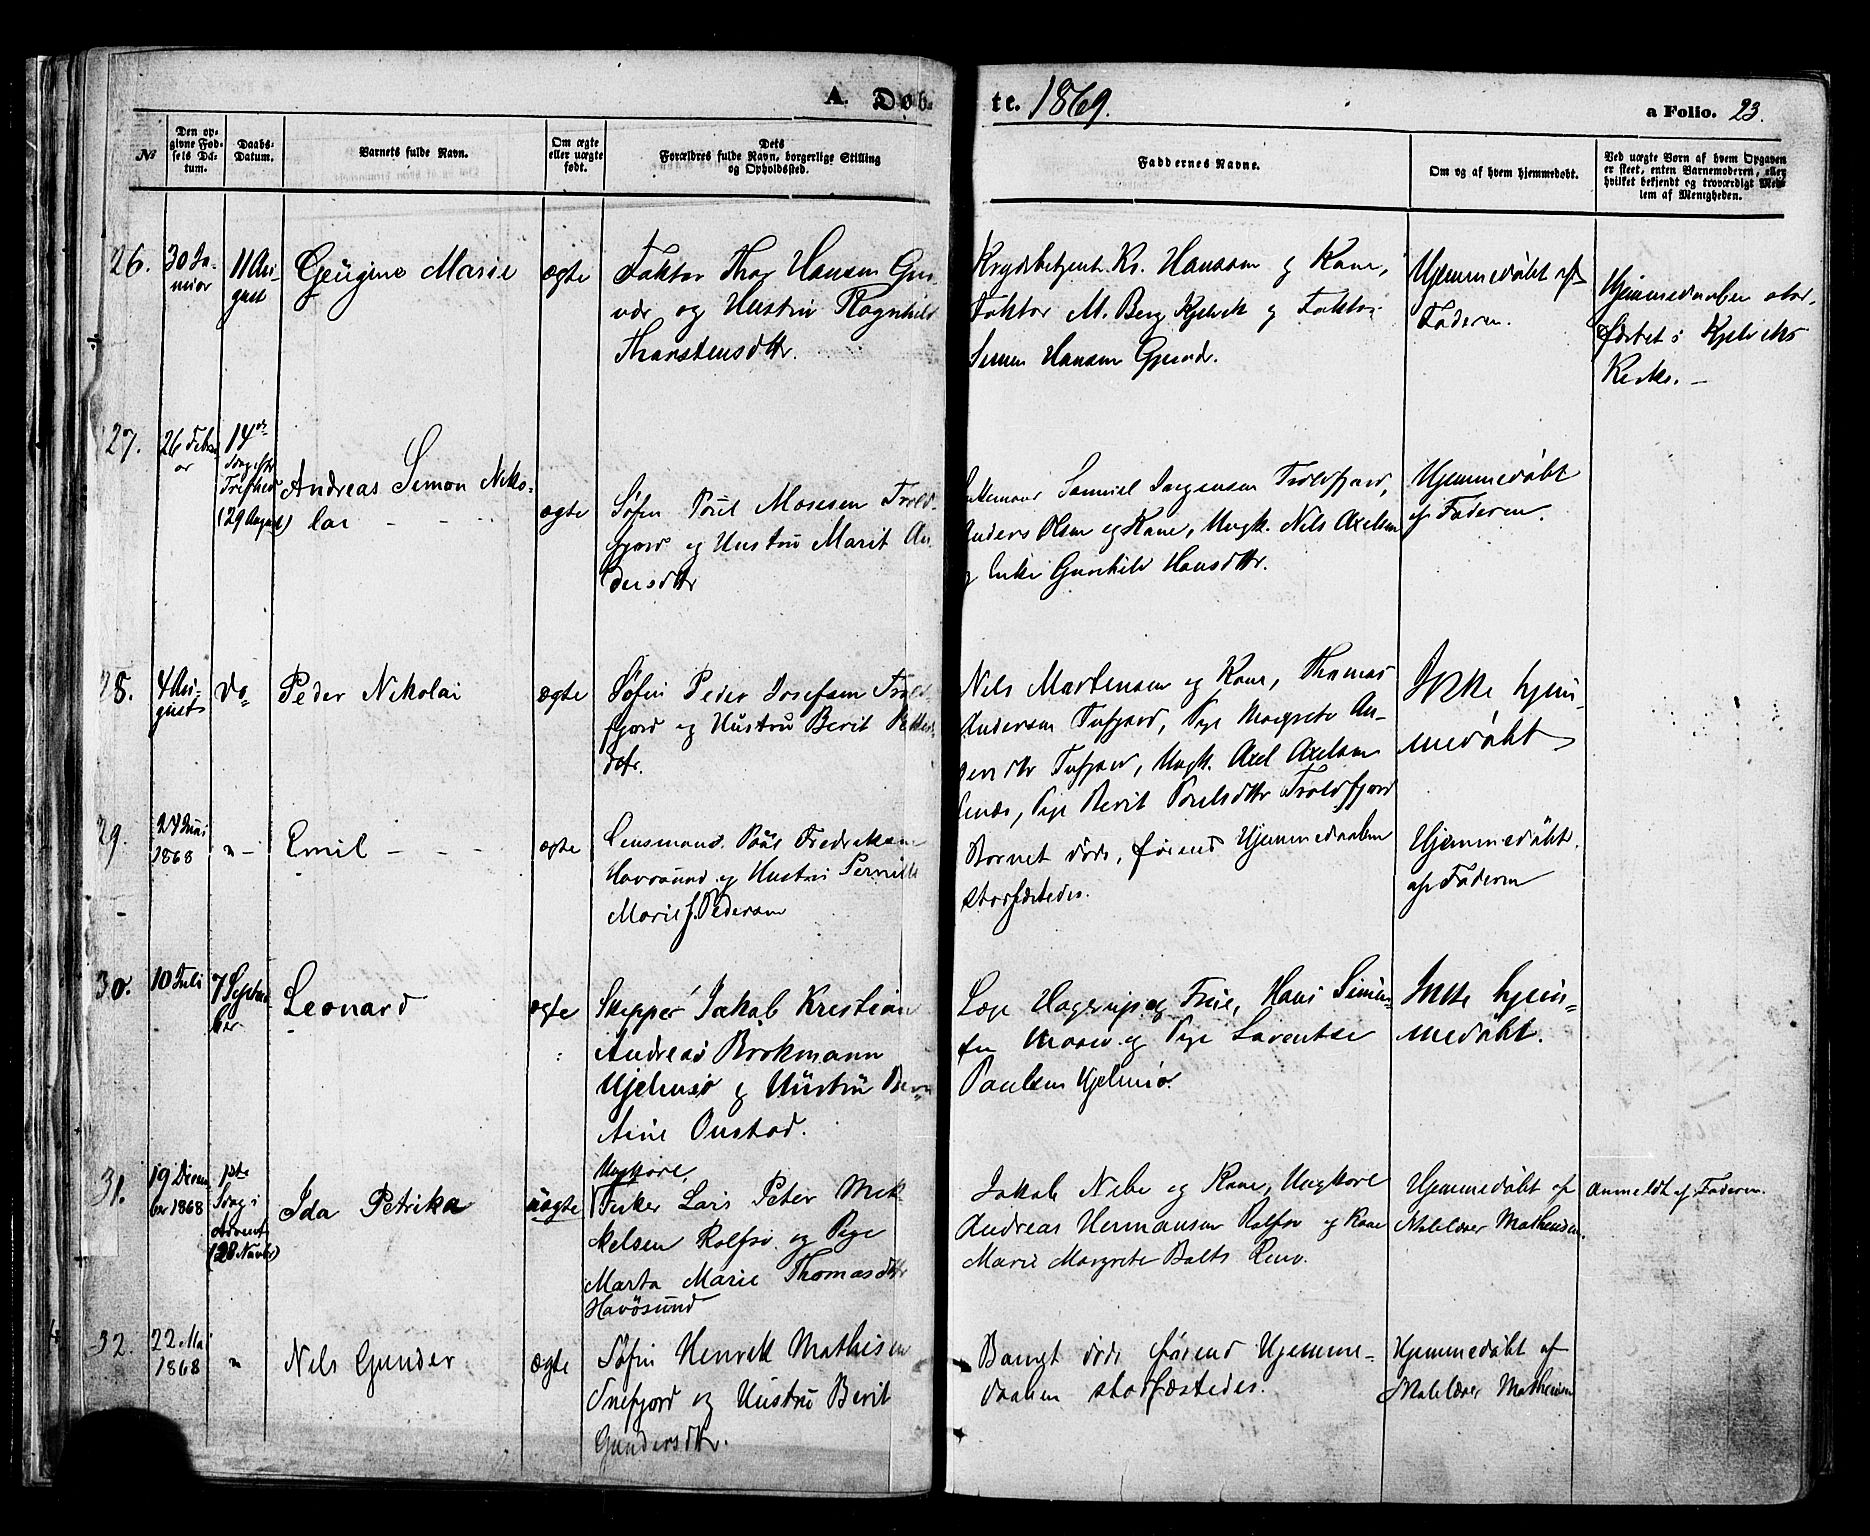 A. Døb-
te. 1869.
a Folio. 23.
№
Den op-
givne Fød-
sels Da-
tum.
Daabs-
Datum.
Barnets fulde Navn.
Om ægte
eller uægte
født.
Dets
Forældres fulde Navn, borgerlige Stilling
og Opholdssted.
Faddernes Navne.
Om og af hvem hjemmedøbt.
Ved uægte Børn af hvem Opgaven
er skeet, enten Barnemoderen, eller
hvilket bekjendt og troværdigt Med-
lem af Menigheden.
26.
30 Ja-
nuar
11 Au-
gust
Marie
ægte
Faktor Thor Hansen
og Hustru Ragnhild
Thorstensdttr.
Kr. Hansen og Kone,
Faktor M. Berg Kjelvik og Faktor
Simon Hansen
Hjemmedøbt af
Faderen.
Hjemmedaaben stad-
fæstet i Kjelviks
Kirke. —
27.
26 Febru-
ar
14de
Søng. eftr
Trefhed
(29 August)
Andreas Simon Niko-
lai - - -
ægte
Søfin Poul Mosesen Trold-
fjord og Hustru Marit An-
dersdttr
Samuel Jørgensen Troldfjord,
Anders Olsen og Kone, Ungk. Nils Axelsen
og Enke Gunhild Hansdttr.
Hjemmedøbt
af Faderen.
28.
4 Au-
gust
Do
Peder Nikolai
ægte
Søfin Peder Josefsen Trold-
fjord og Hustru Berit Peders-
dtr.
Nils Martensen og Kone, Thomas
Andersen Tufjord, Pige Margrete An-
dersdtr Tufjord, Ungk. Axel Axelsen
Pige Berit Poulsdttr Troldfjord
Ikke hjem-
medøbt
29.
1868
"
Emil - - -
ægte
Lensmand Paal Fredriksen
Havøsund og Hustru Pernille
Marie f. Pedersen
Barnet døde, førend Hjemmedaaben
stadfæstedes.
Hjemmedøbt
af Faderen
30.
10 Juli
7 Septem-
ber
Leonard
ægte
Skipper Jakob Kristian
Andreas Brokmann
Hjelmsø og Hustru
Onstad.
Læge Hagerup og Frue, Hans Simon-
sen og Pige Laventse
Paulsen Hjelmsø
Ikke hjem-
medøbt.
31.
19 Decem-
ber 1868
1ste
Søng i
Advent
(28 Novbr)
Ida Petrika
uægte
Ungkarl,
Fisker Lars Peter Mik-
kelsen Rolfsø og Pige
Marta Marie Thomasdttr
Havøsund
Jakob Nebe og Kone, Ungkarl
Andreas Hermansen Rolfsø og Kone
Marie Margrete Balts
Hjemmedøbt af
Mathesen.
Anmeldt af Faderen.
32.
22 Mai
1868
"
Nils Gunder
ægte
Søfin Henrik Mathisen
Snefjord og Hustru Berit
Gundersdttr.
Barnet døde førend Hjemme-
daaben stadfæstedes.
Hjemmedøbt af
Mathesen